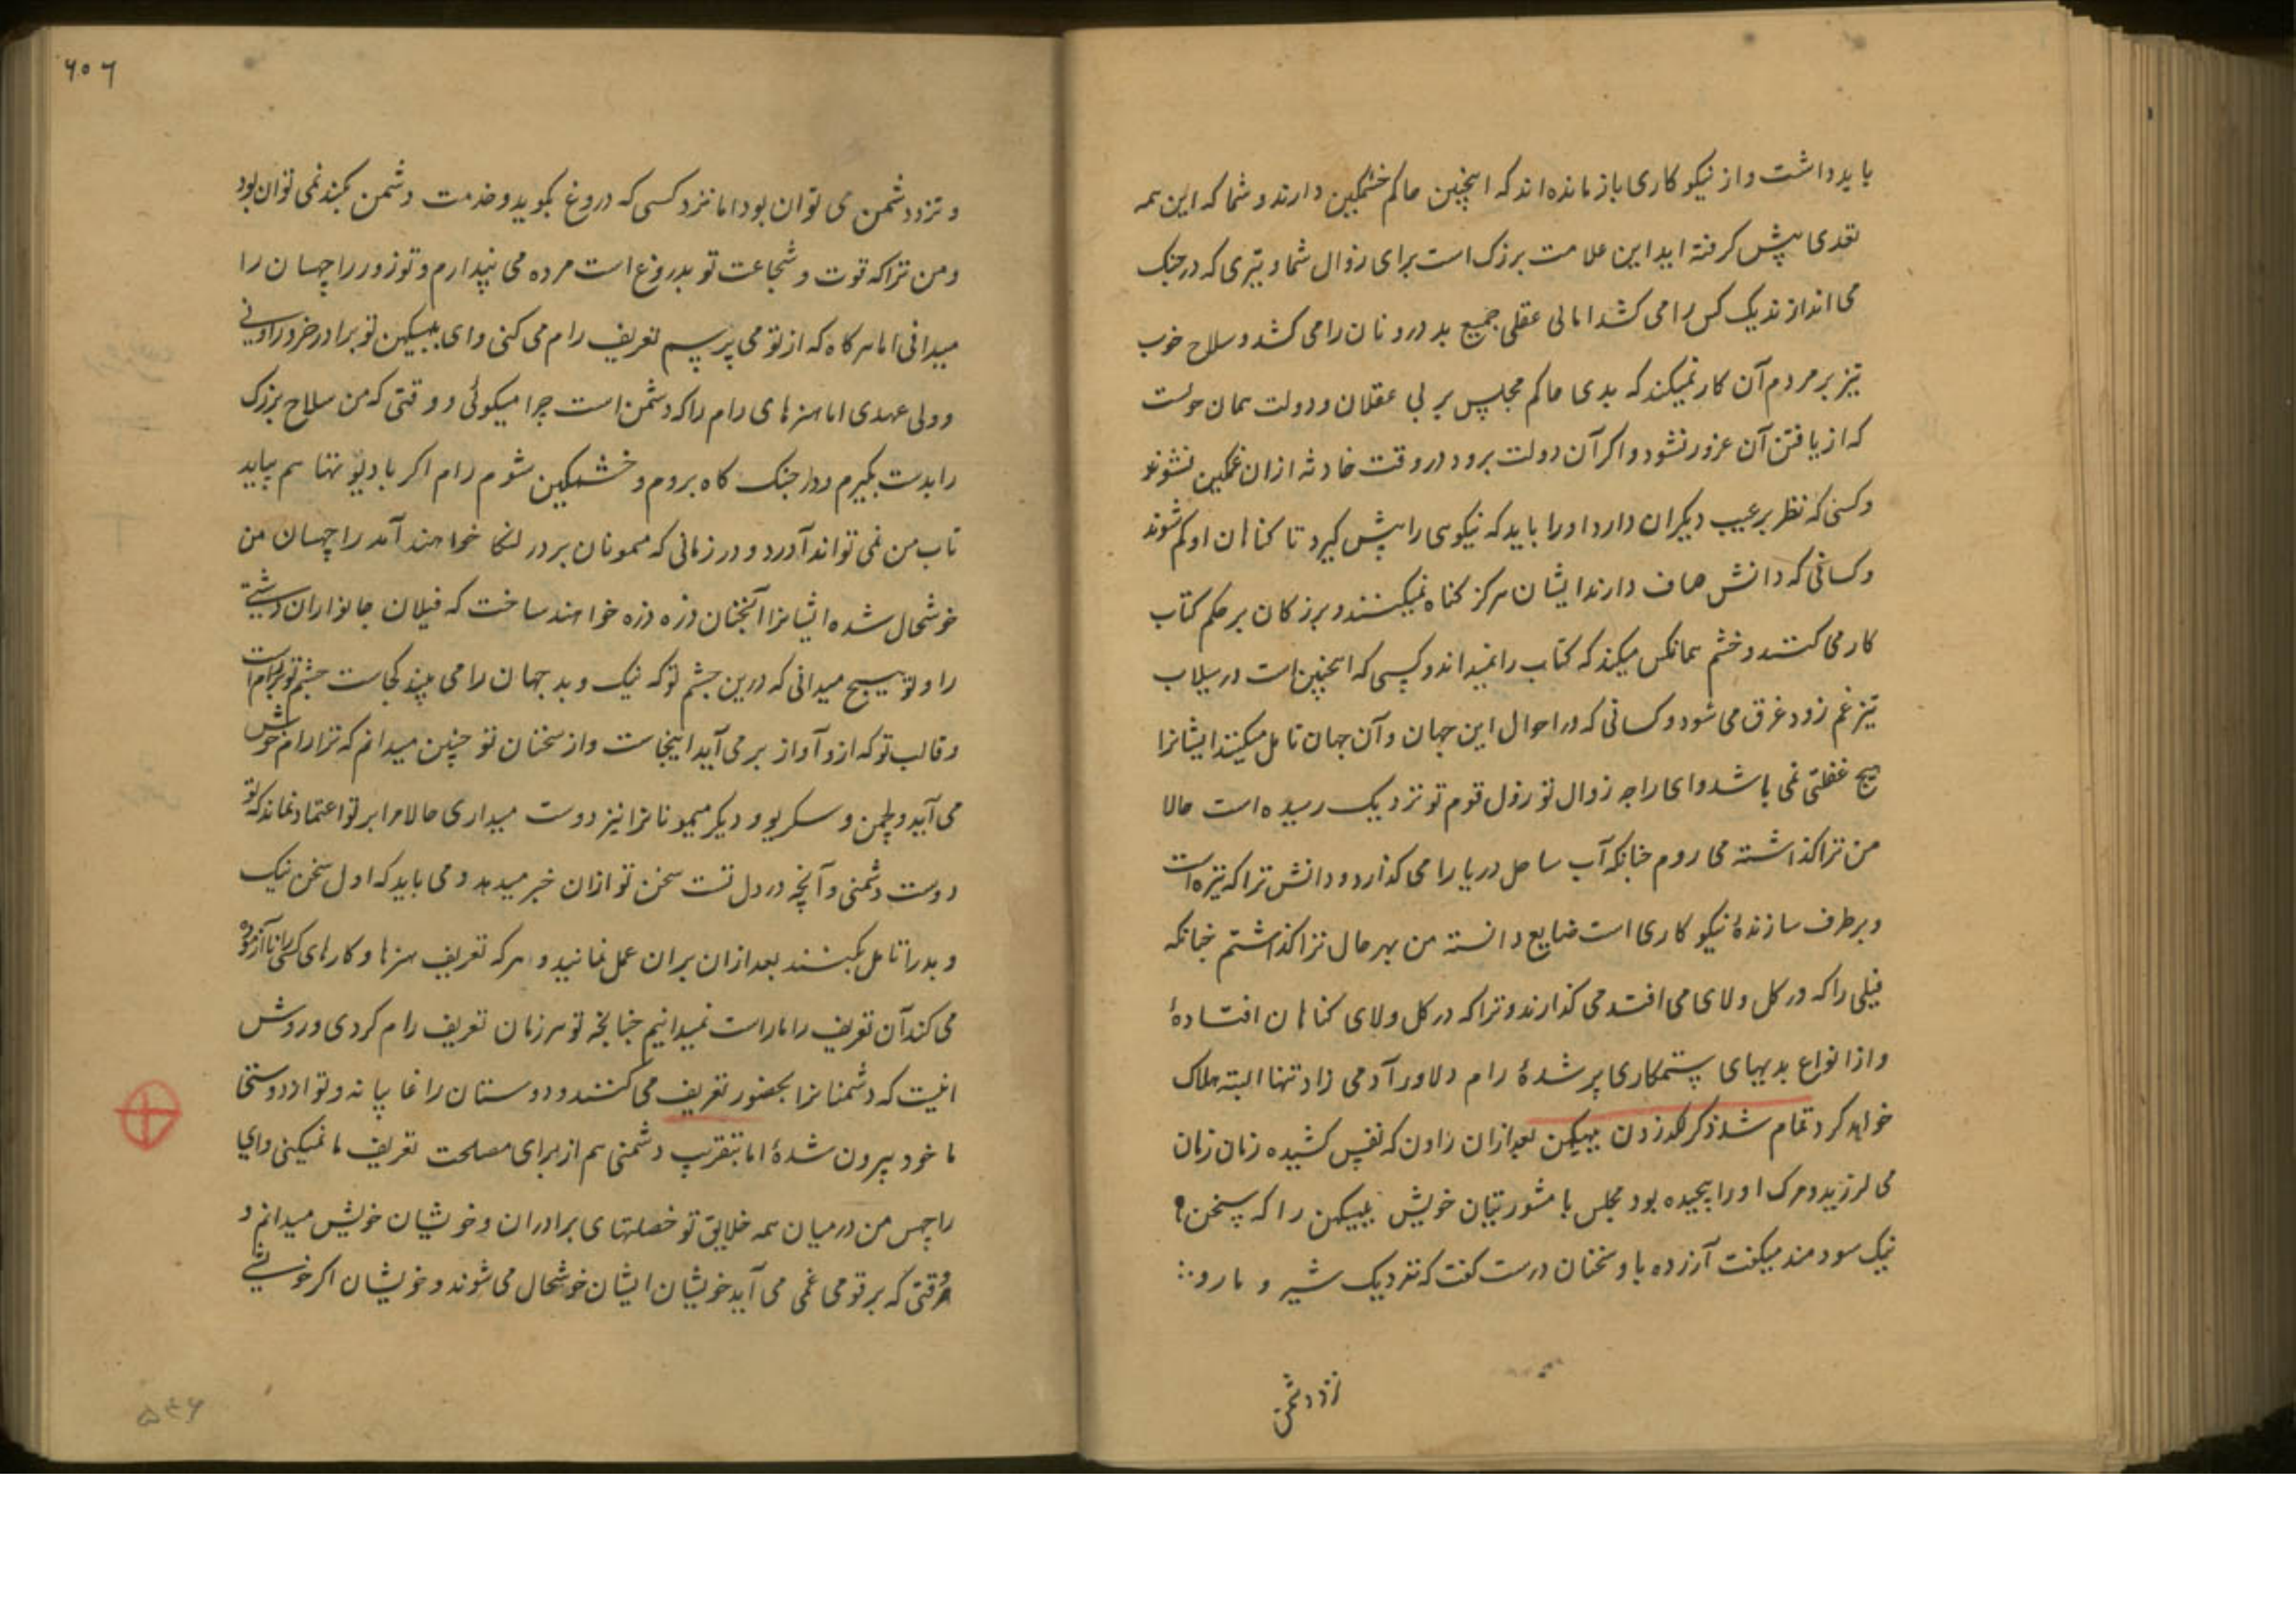 باید داشت و از نیکو کاری باز مانده اند که اینچنین حاکم خشمکین دارند و شما که این همه
تعدی پیش کرفته اید این علامت بزرک است برای زوال شما و تیری که در جنک
می اندازند یک کس را می کشد اما بی عقلی جمیع بد درونان را می کشد و سلاح خوب
تیز بر مردم آن کار نمیکند که بدی حاکم مجلس بر بی عقلان و دولت همان خوبست
که از یافتن آن غرور نشود و اکر آن دولت برود در وقت حادثه ازان غمکین نشوند
و کسی که نظر بر عیب دیکران دارد اورا باید که نیکوی را پیش کیرد تا کناهان او کم شوند
و کسانی که دانش صاف دارند ایشان هرکز کناه نمیکنند و بزرکان بر حکم کتاب
کار می کنند و خشم همانکس میکند که کتاب را نمیداند و کسی که اینچنین است در سیلاب
تیز غم زود غرق می شود و کسانی که در احوال این جهان و آن جهان تامل میکنند ایشانرا
هیچ غفلتی نمی باشد و ای راجه زوال تو و زوال قوم تو نزدیک رسیده است حالا
من ترا کذاشته می روم چنانکه آب ساحل دریا را می کذارد و دانش ترا که تیره است
و برطرف سازندهٔ نیکو کاری است ضایع دانسته من بهر حال ترا کذاشتم چنانکه
فیلی را که در کل ولای می افتد می کذارند و ترا که در کل ولای کناهان افتادهٔ
و از انواع بدیهای ستمکاری پر شدهٔ رام دلاور آدمی زاد تنها البته هلاک
خواهد کرد تمام شد ذکر لکد زدن ببیکهن بعد ازان راون که نفس کشیده زنان زنان
می لرزید و مرک اورا پیچیده بود مجلس با مشورتیان خویش ببیکهن را که سخن
نیک سودمند میکفت آزرده با و سخنان درست کفت که نزدیک شیر و مار و
نزد دشمن
۶۰۶
و نزد دشمن می توان بود اما نزد کسی که دروغ بکوید و خدمت دشمن بکند نمی توان بود
و من ترا که قوت و شجاعت تو بدروغ است مرده می پندارم و تو زور راچهسان را
میدانی اما هرکاه که از تو می پرسم تعریف رام می کنی و ای ببیکهن تو برادر خرد راونی
و ولی عهدی اما هنرهای رام را که دشمن است چرا میکوئی و وقتی که من سلاح بزرک
را بدست بکیرم و در جنک کاه بروم و خشمکین شوم رام اکر با دیو تنها هم بیاید
تاب من نمی تواند آورد و در زمانی که میمونان بر در لنکا خواهند آمد راچهسان من
خوشحال شده ایشانرا آنچنان ذره ذره خواهند ساخت که فیلان جانواران دشتی
را و تو هیچ میدانی که درین چشم تو که نیک و بد جهان را می بیند کجاست چشم تو بر رام است
و قالب تو که ازو آواز بر می آید اینجاست و از سخنان تو چنین میدانم که ترا رام خوش
می آید و لچمن و سکریو و دیکر میمونانرا نیز دوست میداری حالا مرا بر تو اعتماد نماند که تو
دوست دشمنی و آنچه در دل تست سخن تو ازان خبر میدهد و می باید که اول سخن نیک
و بد را تامل بکنند بعد ازان بران عمل نمایند و هر که تعریف هنرها و کارهای کسی را نا آزموده
می کند آن تعریف را ما راست نمیدانیم چنانچه تو هر زمان تعریف رام کردی و روش
اینست که دشمنانرا بحضور تعریف می کنند و دوستان را غایبانه و تو از دوستی
ما خود بیرون شدهٔ اما بتقریب دشمنی هم از برای مصلحت تعریف ما نمیکنی و ای
راچهس من درمیان همه خلایق تو خصلتهای برادران و خویشان خویش میدانم و
هر وقتی که بر قومی غمی می آید خویشان ایشان خوشحال می شوند و خویشان اکر خویشی
۵۴۶